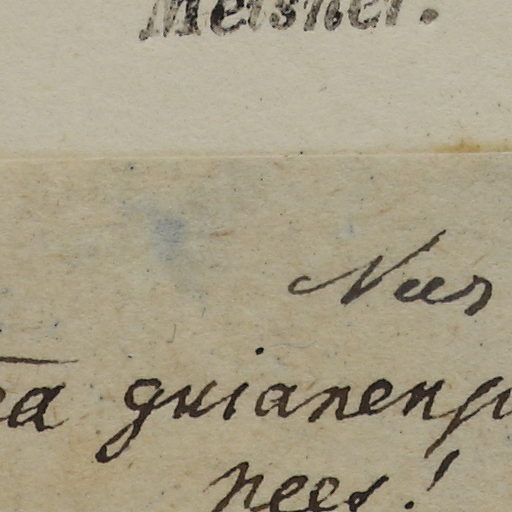 Meisner.
Nees
ea guianensi
nees!